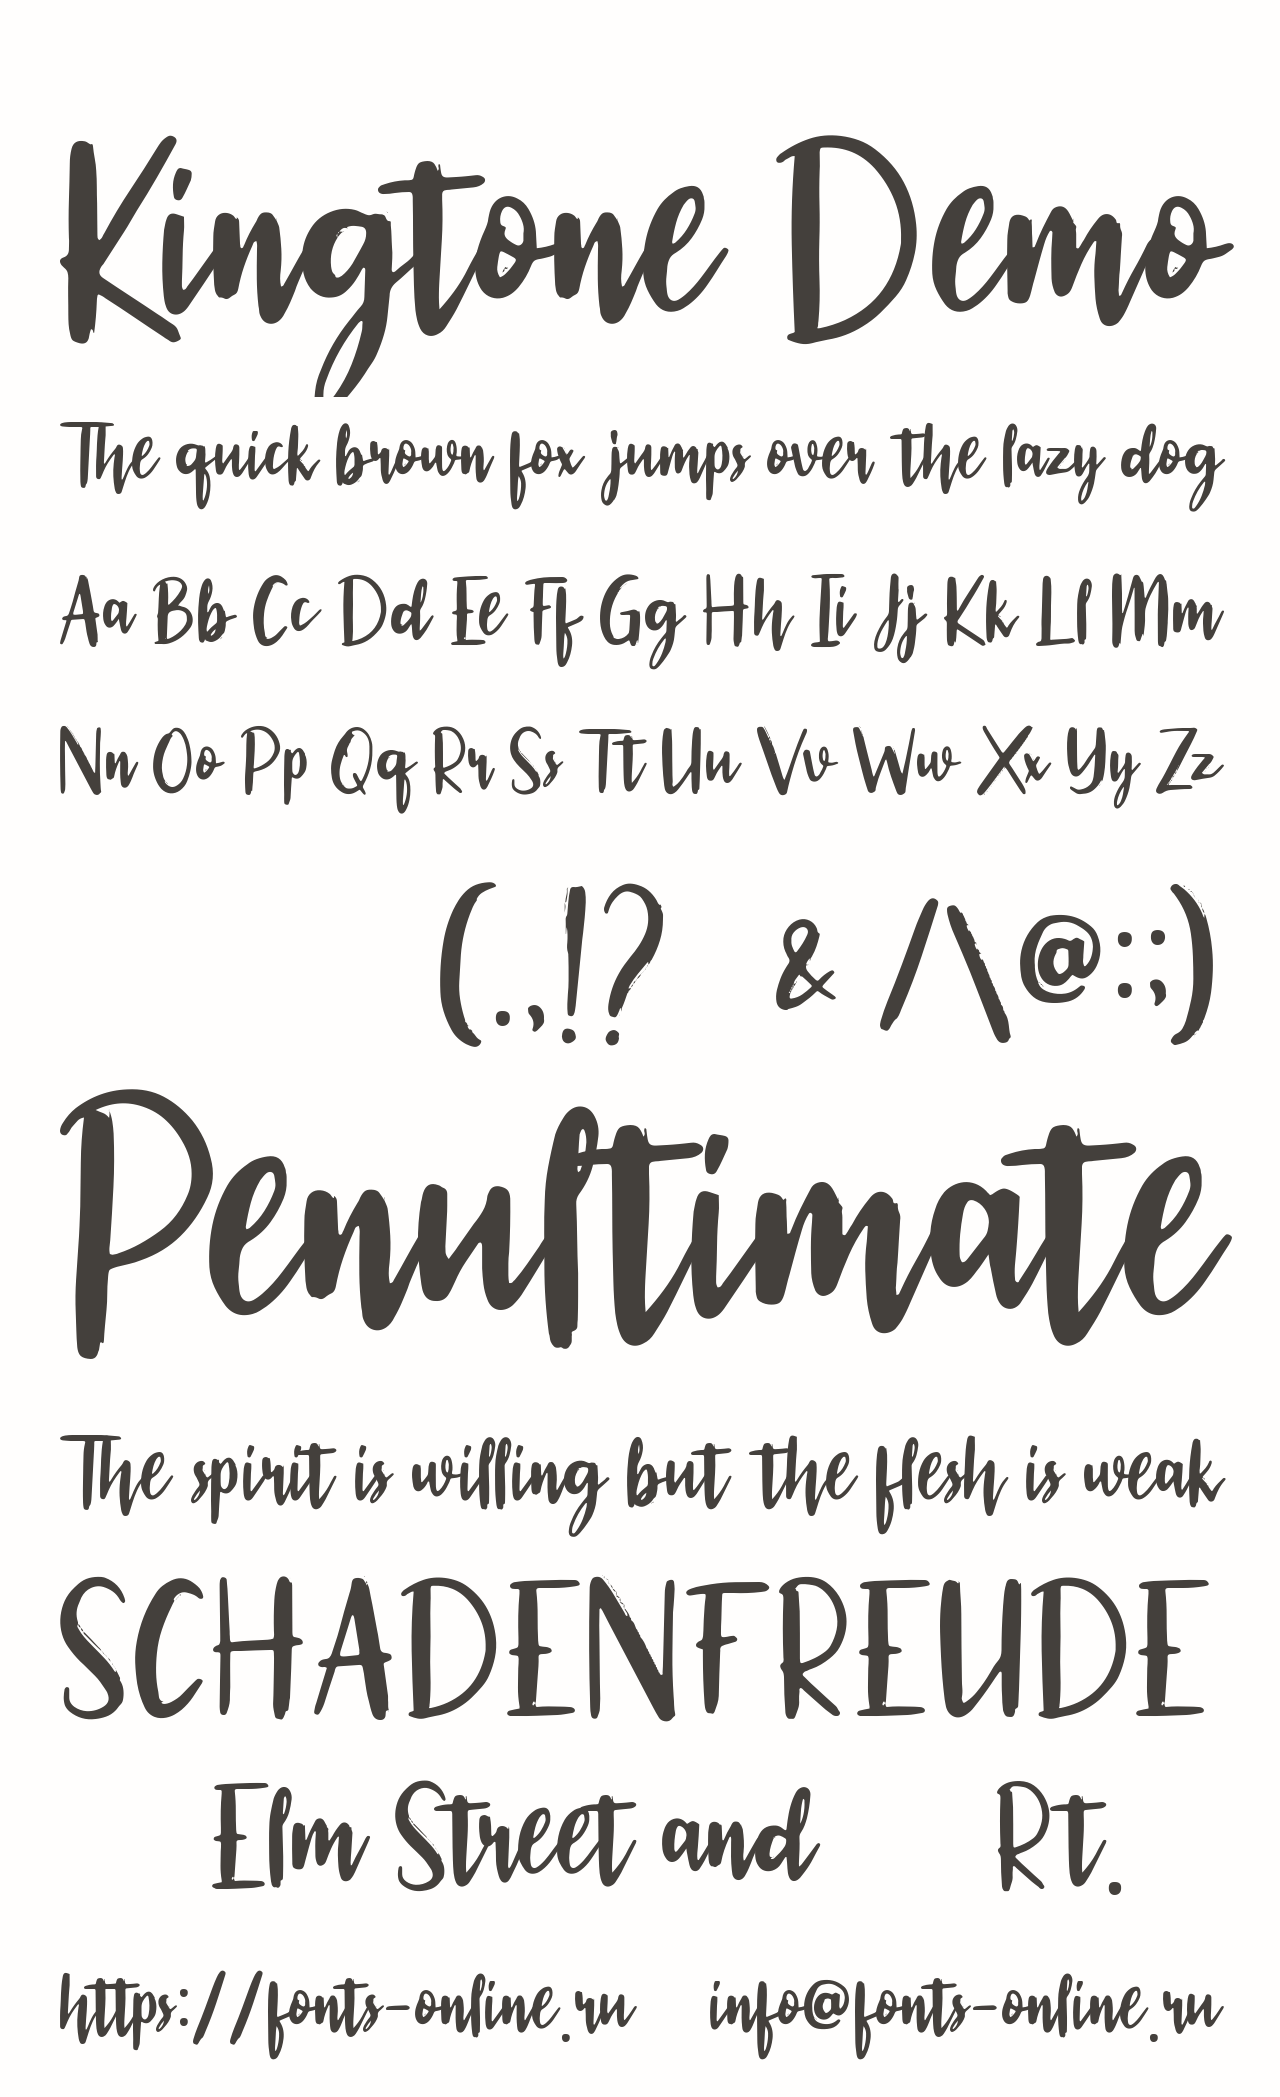 Kingtone Demo
The quick brown fox jumps over the lazy dog
Aa Bb Cc Dd Ee Ff Gg Hh Ii Jj Kk Ll Mm
Nn Oo Pp Qq Rr Ss Tt Uu Vv Ww Xx Yy Zz
(.,!? & /\@:;)
Penultimate
The spirit is willing but the flesh is weak
SCHADENFREUDE
Elm Street and Rt.
https://fonts-online.ru info@fonts-online.ru